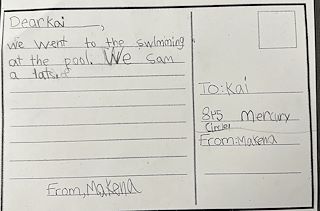 Dear Kai,
we went to the swimming
at the pool. We sam
a
From, Makena
To: Kai
815 Mercury
Circle
From: Makena